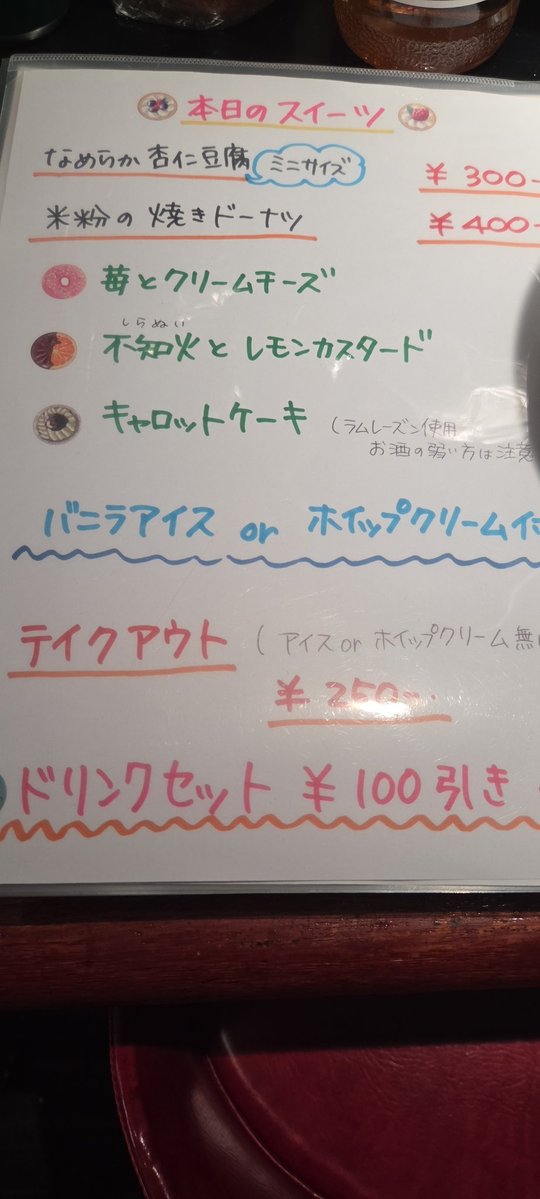 本日のスイーツ
なめらか杏仁豆腐 ミニサイズ ¥300-
米粉の焼きドーナツ ¥400-
苺とクリームチーズ
しらぬい
不知火とレモンカスタード
キャロットケーキ (ラムレーズン使用
お酒の弱い方は注意
バニラアイス or ホイップクリーム付
テイクアウト (アイス or ホイップクリーム無
¥250-
ドリンクセット ¥100引き